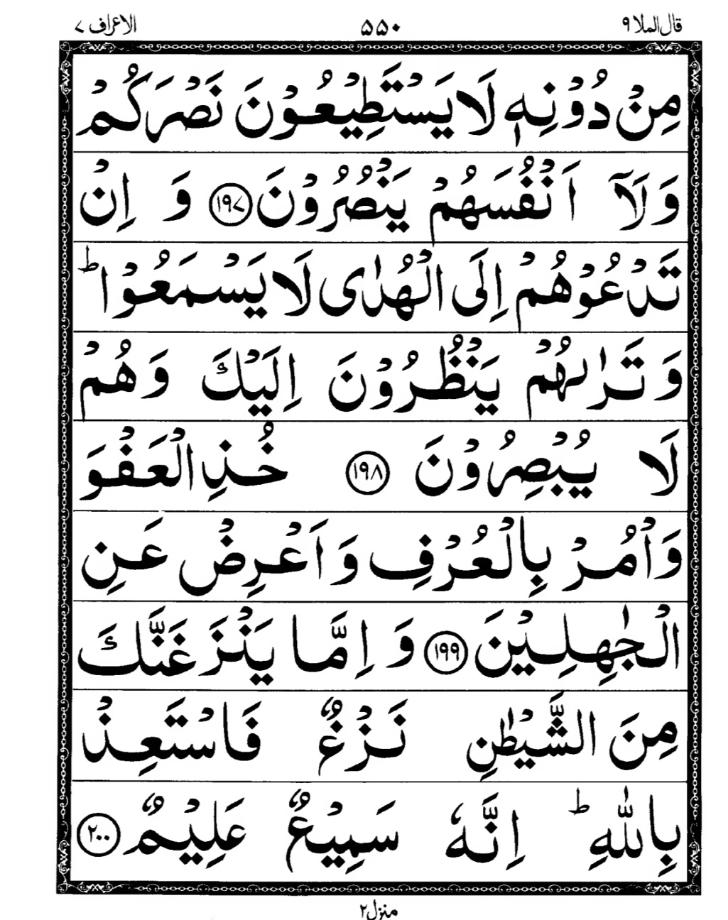 قال الملا ۹ ۵۵۰ الاعراف ۷
مِنْ دُوْنِهٖ لَا يَسْتَطِيْعُوْنَ نَصْرَكُمْ
وَلَآ اَنْفُسَهُمْ يَنْصُرُوْنَ ﴿۱۹۷﴾ وَ اِنْ
تَدْعُوْهُمْ اِلَى الْهُدٰى لَا يَسْمَعُوْا ؕ
وَتَرٰىهُمْ يَنْظُرُوْنَ اِلَيْكَ وَهُمْ
لَا يُبْصِرُوْنَ ﴿۱۹۸﴾ خُذِ الْعَفْوَ
وَاْمُرْ بِالْعُرْفِ وَاَعْرِضْ عَنِ
الْجٰهِلِيْنَ ﴿۱۹۹﴾ وَ اِمَّا يَنْزَغَنَّكَ
مِنَ الشَّيْطٰنِ نَزْغٌ فَاسْتَعِذْ
بِاللّٰهِ ؕ اِنَّهٗ سَمِيْعٌ عَلِيْمٌ ﴿۲۰۰﴾
منزل ۲